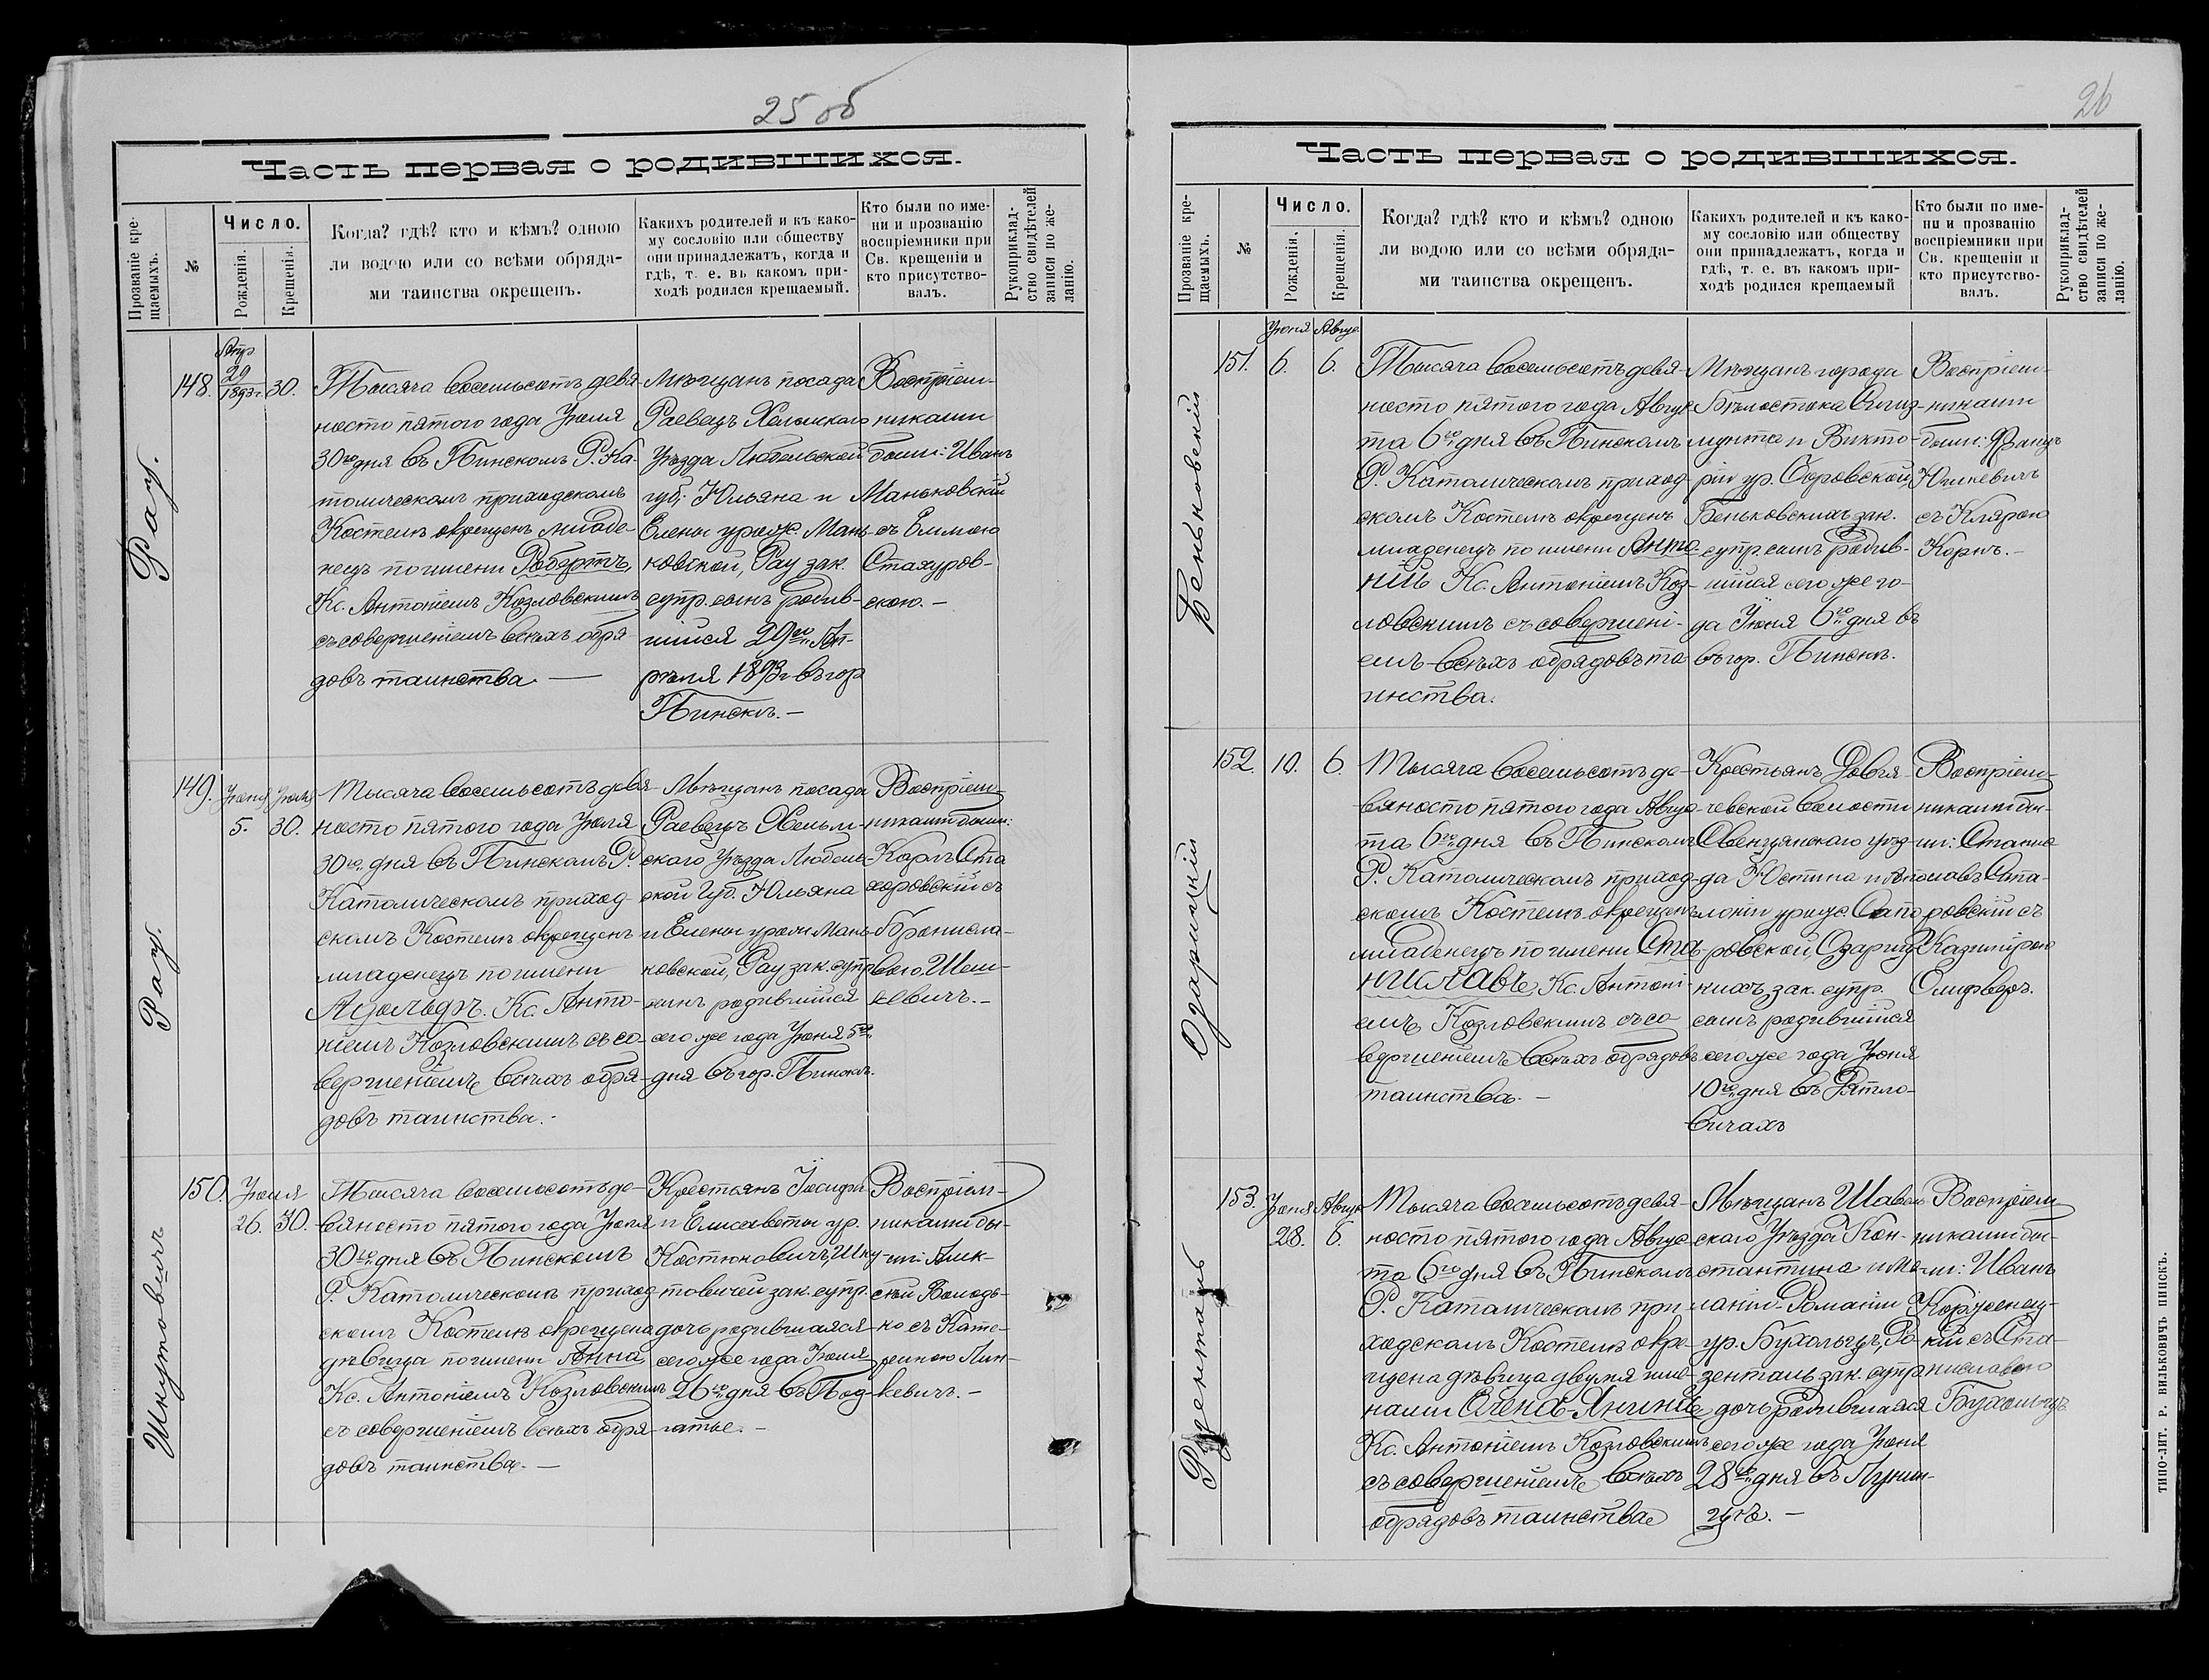 25 об
Часть первая о родившихся.
Прозваніе кре-
щаемыхъ.
№
Число.
Рожденія.
Крещенія.
Когда? гдѣ? кто и кѣмъ? одною
ли водою или со всѣми обряда-
ми таинства окрещенъ.
Какихъ родителей и къ како-
му сословію или обществу
они принадлежатъ, когда и
гдѣ, т. е. въ какомъ при-
ходѣ родился крещаемый.
Кто были по име-
ни и прозванію
воспріемники при
Св. крещеніи и
кто присутство-
валъ.
Рукоприклад-
ство свидѣтелей
записи по же-
ланію.
Рау.
148.
Апр.
29
1893 г.
30.
Тысяча восемьсотъ девя-
носто пятого года Іюля
30го дня въ Пинскомъ Р. Ка-
толическомъ приходскомъ
Костелѣ окрещенъ младе-
нецъ по имени Робертъ,
Кс. Антоніемъ Козловскимъ
съ совершеніемъ всѣхъ обря-
довъ таинства. —
Мѣщанъ посада
Раевецъ Холмскаго
Уѣзда Любельской
губ. Юльяна и
Елены урож. Мань-
ковской, Рау зак.
супр. сынъ родив-
шійся 29го Ап-
рѣля 1893 г. въ гор
Пинскѣ. —
Воспріем-
никами
были: Иванъ
Маньковскій
съ Еммою
Стахуров-
скою. —
Рау.
149.
Іюня
5.
Іюля
30.
Тысяча восемьсотъ девя-
носто пятого года Іюля
30го дня въ Пинскомъ Р.
Католическомъ приход-
скомъ Костелѣ окрещенъ
младенецъ по имени
Адольфъ. Кс. Анто-
ніемъ Козловскимъ съ со-
вершеніемъ всѣхъ обря-
довъ таинства. -
Мѣщанъ посада
Раевецъ Хельм-
скаго Уѣзда Любель-
ской Губ. Юльяна
и Елены урож Мань-
ковской, Рау зак. супр
сынъ родившійся
сего же года Іюня 5го
дня въ гор. Пинскѣ.
Воспріем-
никами были:
Карлъ Ста
хоровскій съ
Бронисла-
вою Шеш-
кевичъ. -
Шкутовичъ
150.
Іюля
26.
30.
Тысяча восемьсотъ де-
вяносто пятого года Іюля
30го дня въ Пинскомъ
Р. Католическомъ приход
скомъ Костелѣ окрещена
дѣвица по имени Анна
Кс. Антоніемъ Козловскимъ
съ совершеніемъ всѣхъ обря
довъ таинства. —
Крестьянъ Іосифа
и Елисаветы ур.
Костюковичъ, Шку-
товичей зак. супр.
дочь родившаяся
сего же года Іюля
26го дня въ Под-
гатье. —
Воспріем-
никами бы-
ли: Алек-
сѣй Володь-
ко съ Кате-
риною Лин-
кевичъ. —
26
Часть первая о родившихся.
Прозваніе кре-
щаемыхъ.
№
Число.
Рожденія.
Крещенія.
Когда? гдѣ? кто и кѣмъ? одною
ли водою или со всѣми обряда-
ми таинства окрещенъ.
Какихъ родителей и къ како-
му сословію или обществу
они принадлежатъ, когда и
гдѣ, т. е. въ какомъ при-
ходѣ родился крещаемый
Кто были по име-
ни и прозванію
воспріемники при
Св. крещеніи и
кто присутство-
валъ.
Рукоприклад-
ство свидѣтелей
записи по же-
ланію.
Беньковскій
151.
Іюня
6.
Авгус.
6.
Тысяча восемьсотъ девя-
носто пятого года Авгус
та 6го дня въ Пинскомъ
Р. Католическомъ приход
скомъ Костелѣ окрещенъ
младенецъ по имени Анто
ній Кс. Антоніемъ Коз-
ловскимъ съ совершені-
емъ всѣхъ обрядовъ та
инства.
Мѣщанъ города
Бѣлостока Сигиз-
мунта и Викто-
ріи ур.
Беньковскихъ зак.
супр. сынъ родив-
шійся сего же го-
да Іюня 6го дня въ
въ гор. Пинскѣ.
Воспріем-
никами
были: Францъ
Юшкевичъ
съ Клярою
Коржъ. —
Озарицкій
152.
10.
6.
Тысяча восемьсотъ де-
вяносто пятого года Авгус-
та 6го дня въ Пинскомъ
Р. Католическомъ приход-
скомъ Костелѣ окрещенъ
младенецъ по имени Ста
ниславъ Кс. Антоні-
емъ Козловскимъ съ со
вершеніемъ всѣхъ обрядовъ
таинства. —
Крестьянъ Довгя-
чевской волости
Свенцянскаго уѣз-
да Юстина и Апо-
лоніи урож. Сапо
ровской, Озариц-
кихъ, зак. супр.
сынъ родившійся
сего же года Іюня
10го дня въ Рятло-
вичахъ
Воспріем-
никами бы-
ли: Станис
лавъ Сапа-
ровскій съ
Казимірою
Олиферъ.
Розенталь
153.
Іюня
28.
Авгус
6.
Тысяча восемьсотъ девя-
носто пятого года Авгус-
та 6го дня въ Пинскомъ
Р. Католическомъ при
ходскомъ Костелѣ окре-
щена дѣвица двумя име-
нами Олена-Янина
Кс. Антоніемъ Козловскимъ
съ совершеніемъ всѣхъ
обрядовъ таинства
Мѣщанъ Шавель
скаго Уѣзда Кон-
стантина и Ме-
ланіи-Романіи
ур. Бухольцъ, Ро-
зенталь зак. супр
дочь родившаяся
сего же года Іюня
28го дня въ Лунин-
цѣ. —
Воспріем
никами бы-
ли: Иванъ
Корженец-
кій съ Ста-
ниславою
Бухольцъ
ТИПО-ЛИТ. Р. ВИЛЬКОВИЧЪ ПИНСКЪ.